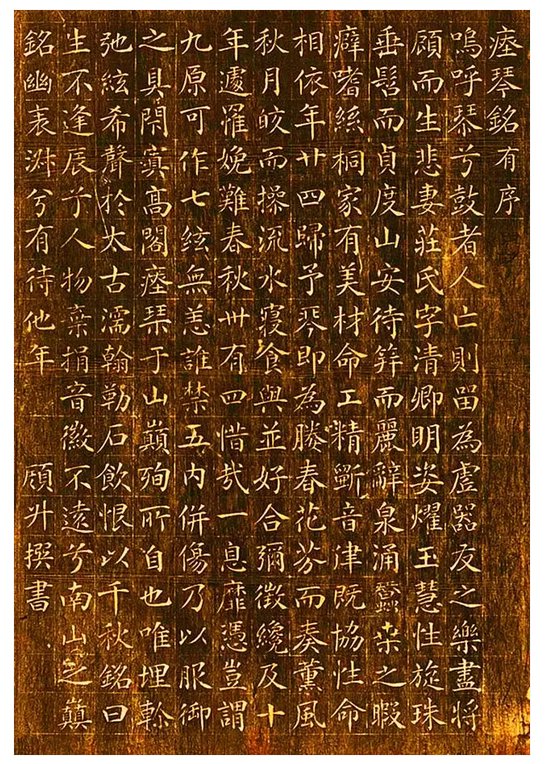 瘞琴銘有序
嗚呼琴兮鼓者人亡則畱為虛器友之樂盡將
頋而生悲妻莊氏字清卿明姿燿玉慧性旋珠
垂髫而貞度山安待筓而麗辭泉涌蠶桒之暇
癖嗜絲桐家有美材命工精斵音律既協性命
相依年廿四歸予琴即為媵春花芬而奏薰風
秋月皎而操流水寢食與並好合彌徵纔及十
年遽罹娩難春秋卅有四惜哉一息靡憑豈謂
九原可作七絃無恙誰禁五內併傷乃以服御
之具閇寘高閣瘞琹于山巔殉所自也唯埋軫
弛絃希聲於太古濡翰勒石飲恨以千秋銘曰
生不逢辰予人物棄捐音徽不遠兮南山之巔
銘幽表淋兮有待他年 頋升撰書